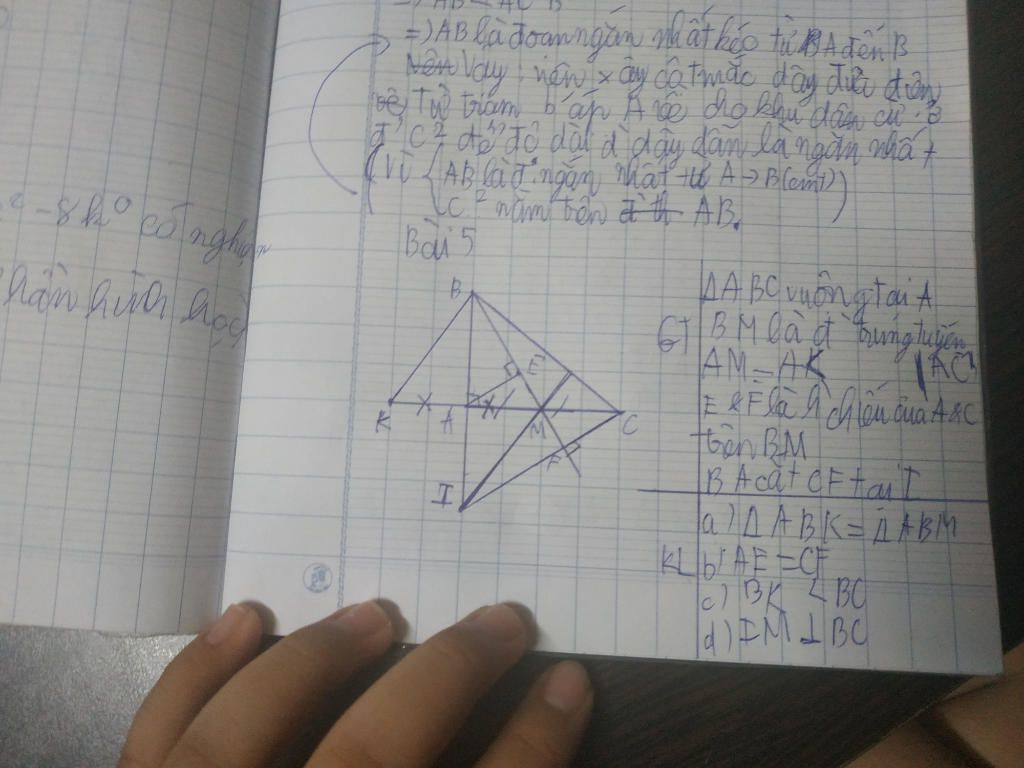 =) AB là đoạn ngắn nhất kéo từ A đến B
Vậy nên xây cột mắc dây đưa điện
từ trạm b áp A về cho khu dân cư B
để độ dài d dây dẫn là ngắn nhất
(Vì { AB là đ ngắn nhất từ A → B (cmt)
C nằm trên AB.
-8 h⁰ có nghiệm
Bài 5
B
E
K
A
M
C
F
I
GT
ΔABC vuông tại A
BM là đ trung tuyến
AM = AK
E & F là h chiếu của A & C
trên BM
BA cắt CF tại I
KL
a) ΔABK = ΔABM
b) AE = CF
c) BK < BC
d) IM ⊥ BC